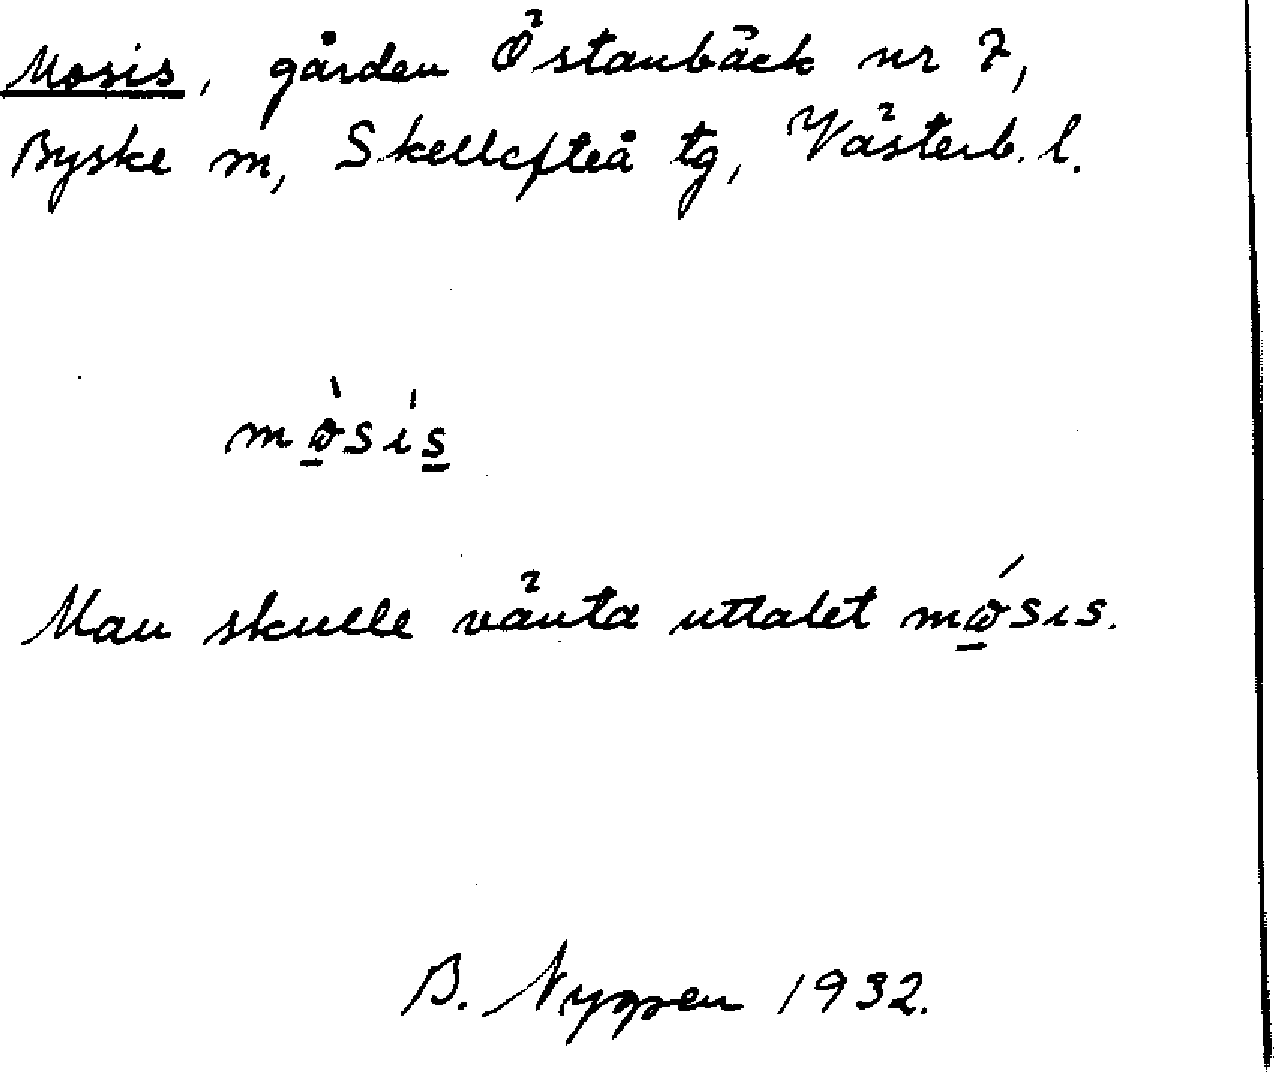 Mosis, gården Östanbäck nr 7,
Byske m, Skellefteå tg, Västerb. l.
mò̲sı̍s̲
Man skulle vänta uttalet mó̲sıs.
B. Nyggen 1932.